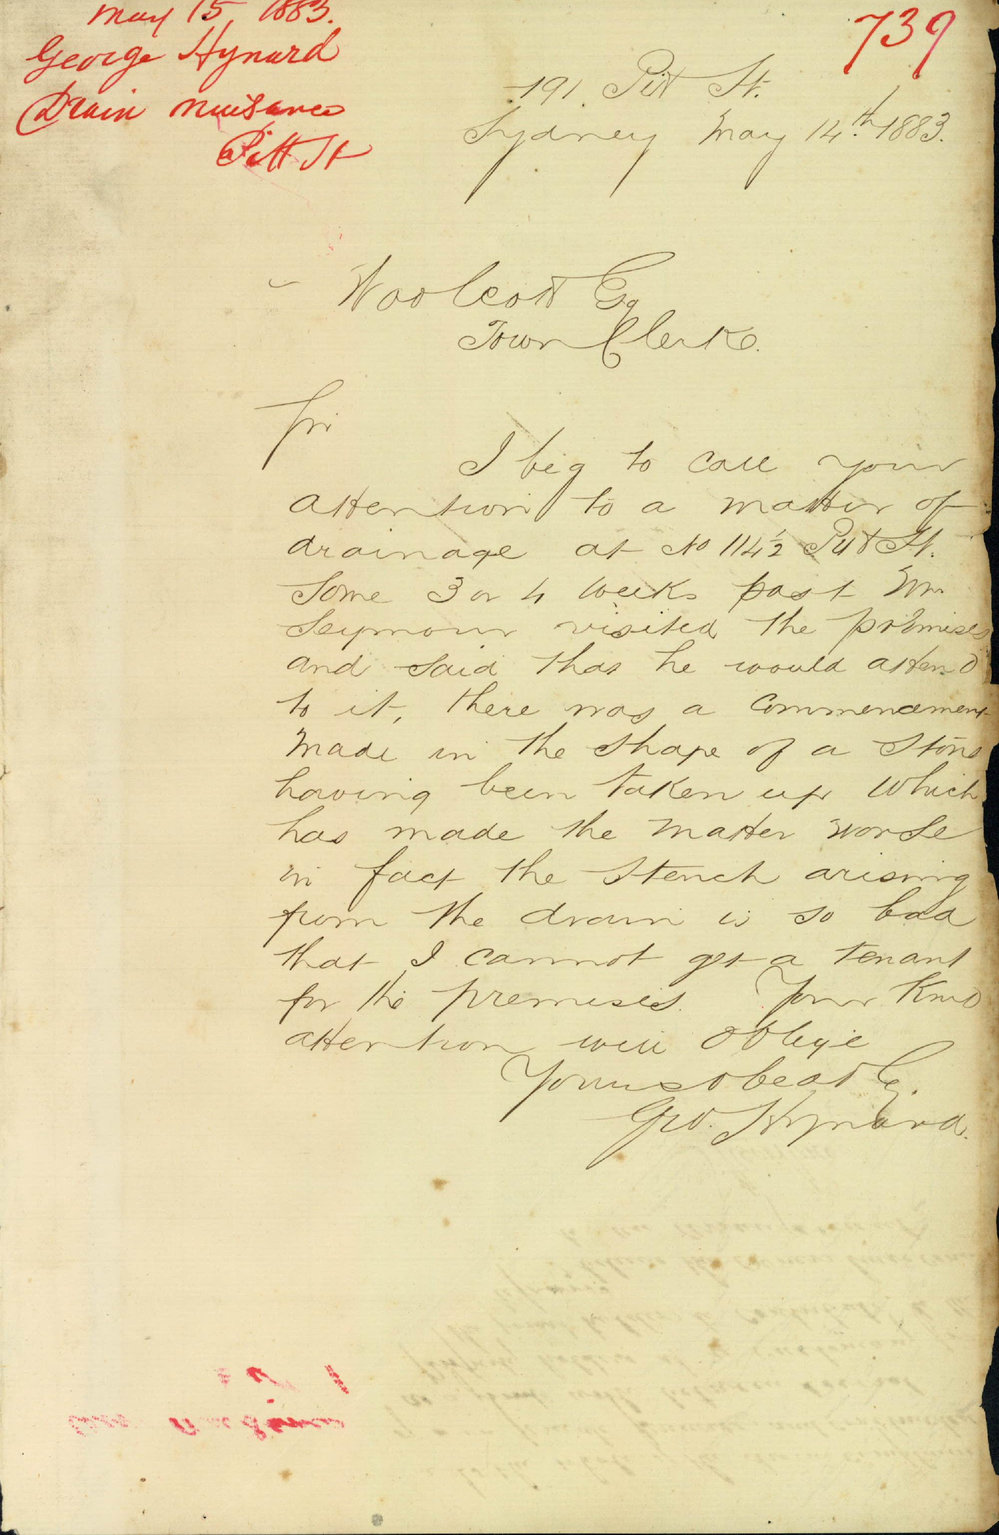 May 15, 1883.
George Hynard
Drain nuisance
Pitt St
739
191 Pitt St.
Sydney May 14th 1883.
Woolcott Esq
Town Clerk.
Sir
I beg to call your
attention to a matter of
drainage at No 114½ Pitt St.
Some 3 or 4 weeks past Mr
Seymour visited the premises
and said that he would attend
to it, there was a Commencement
made in the shape of a stone
having been taken up which
has made the matter worse
in fact the stench arising
from the drain is so bad
that I cannot get a tenant
for the premises. Your kind
attention will oblige
Yours obedt
Geo. Hynard.